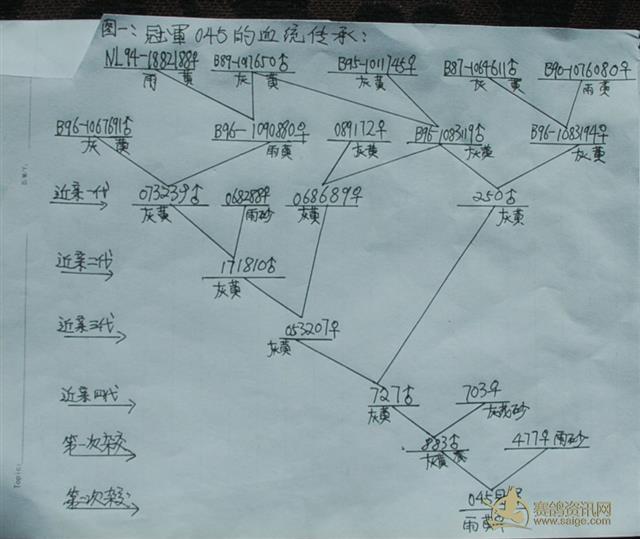 图一：冠軍045的血统传承：
NL94-1882188♀ B89-1017650♂ B95-1011745♀ B87-1064611♂ B90-1076080♀
雨 黄 灰 黄 灰黄 灰 黄 雨黄
B96-1067691♂ B96-1090880♀ 089172♀ B96-1083119♂ B96-1083194♀
灰 黄 雨黄 灰黄 灰黄 灰黄
近亲一代 073239♂ 068288♀ 068689♀ 250♂
灰黄 雨砂 灰黄 灰黄
近亲二代 171810♂
灰黄
近亲三代 053207♀
灰黄
近亲四代 727♂ 703♀
灰黄 砂
第一次杂交 883♂ 477♀ 雨砂
灰黄
第二次杂交 045
雨黄
赛鸽资讯网
www.saige.com
Topic: